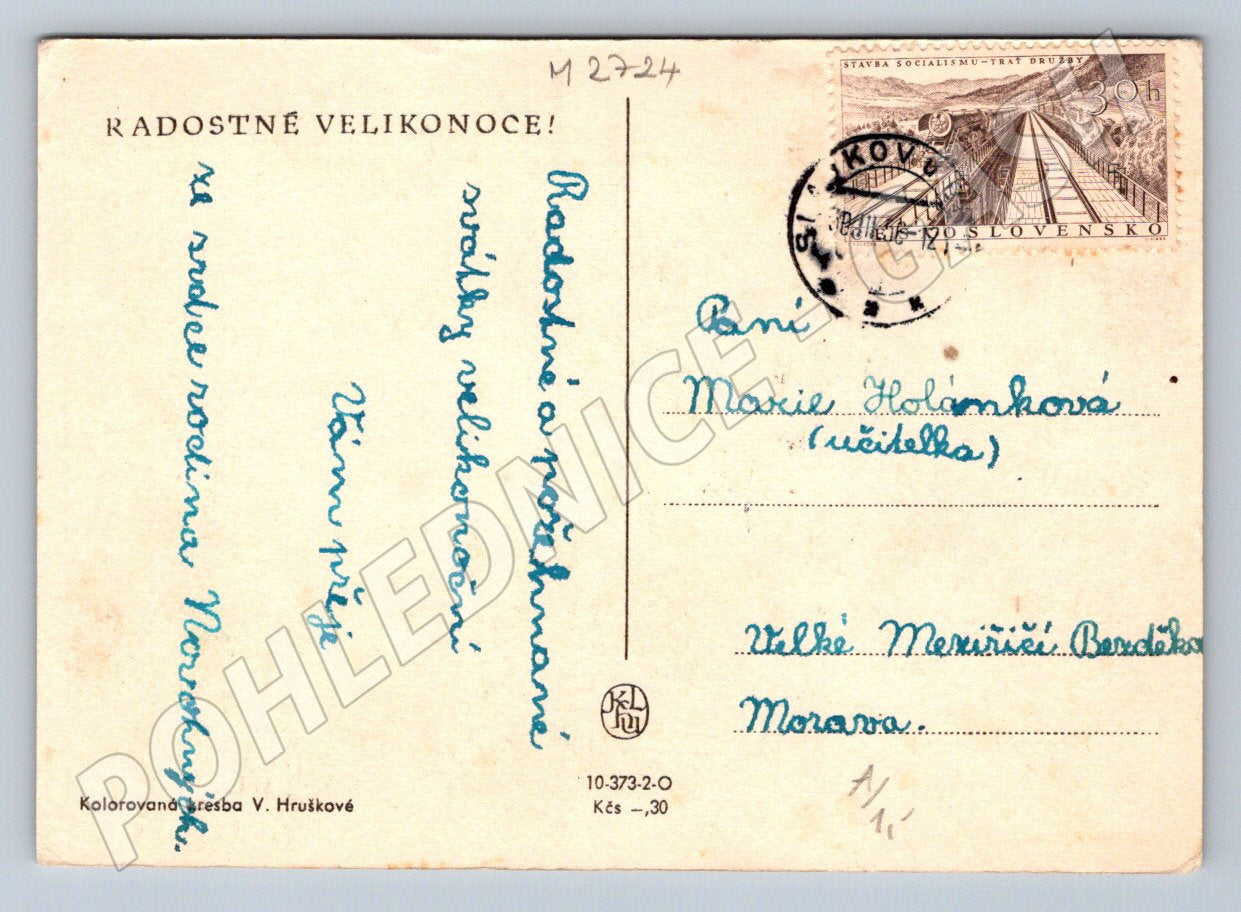 M 2724
RADOSTNÉ VELIKONOCE!
Radostné a požehnané
svátky velikonoční
Vám přeje
ze srdce rodina
Kolorovaná kresba V. Hruškové
10-373-2-O
Kčs –,30
STAVBA SOCIALISMU – TRAŤ DRUŽBY
30h
SLOVENSKO
Paní
Marie Holánková
(učitelka)
Velké Meziříčí Bezděko
Morava.
POHLEDNICE